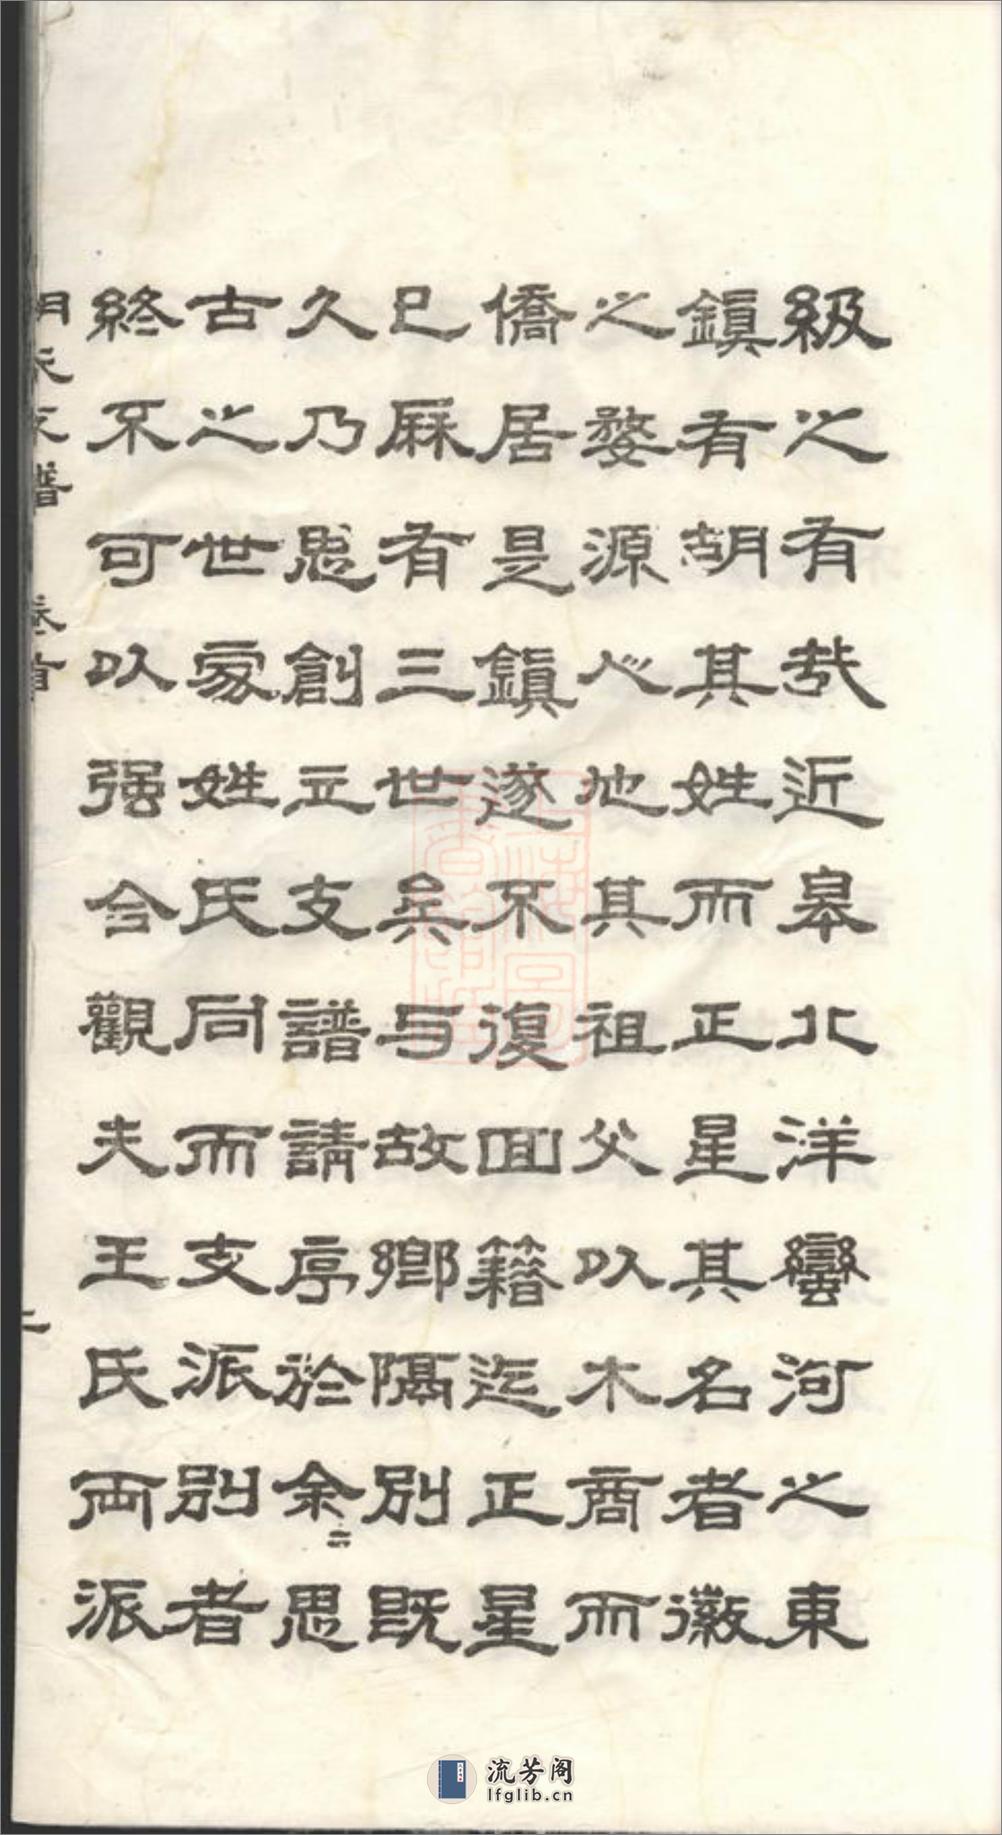 級之有哉近皋北洋蠻河之東
鎭有胡其姓而正星其名者徽
之婺源心地其祖父以木商而
僑居是鎭遂不復回籍迄正星
已厤有三世矣与故鄉隔別既
久乃思創立支譜請序於余余思
古之世家姓氏同而支派別者
終不可以强合觀夫王氏兩派
胡氏支譜 卷首 二
流芳阁
lfglib.cn